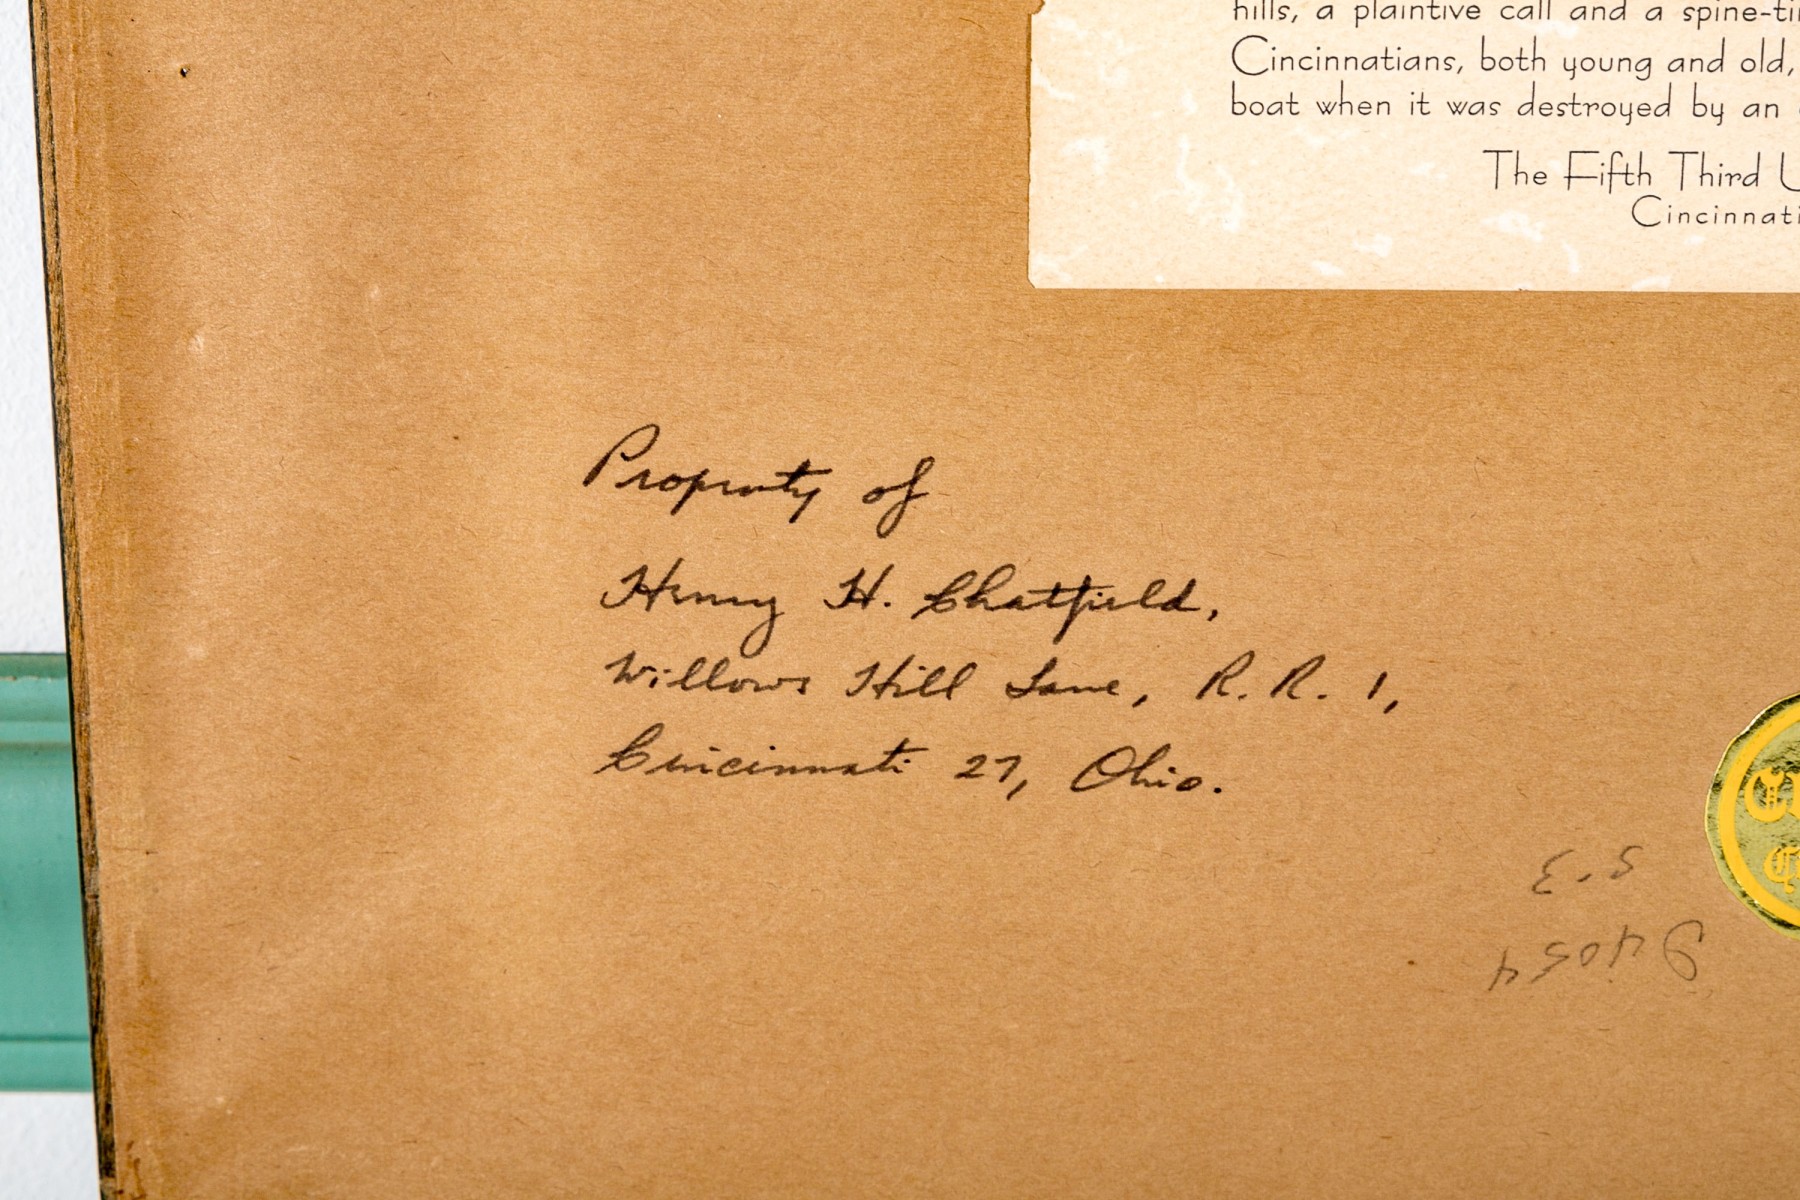 hills, a plaintive call and a
Cincinnatians, both young and old,
boat when it was destroyed by an
The Fifth Third
Cincinnati
Property of
Henry H. Chatfield,
Willows Hill Lane, R. R. 1,
Cincinnati 27, Ohio.